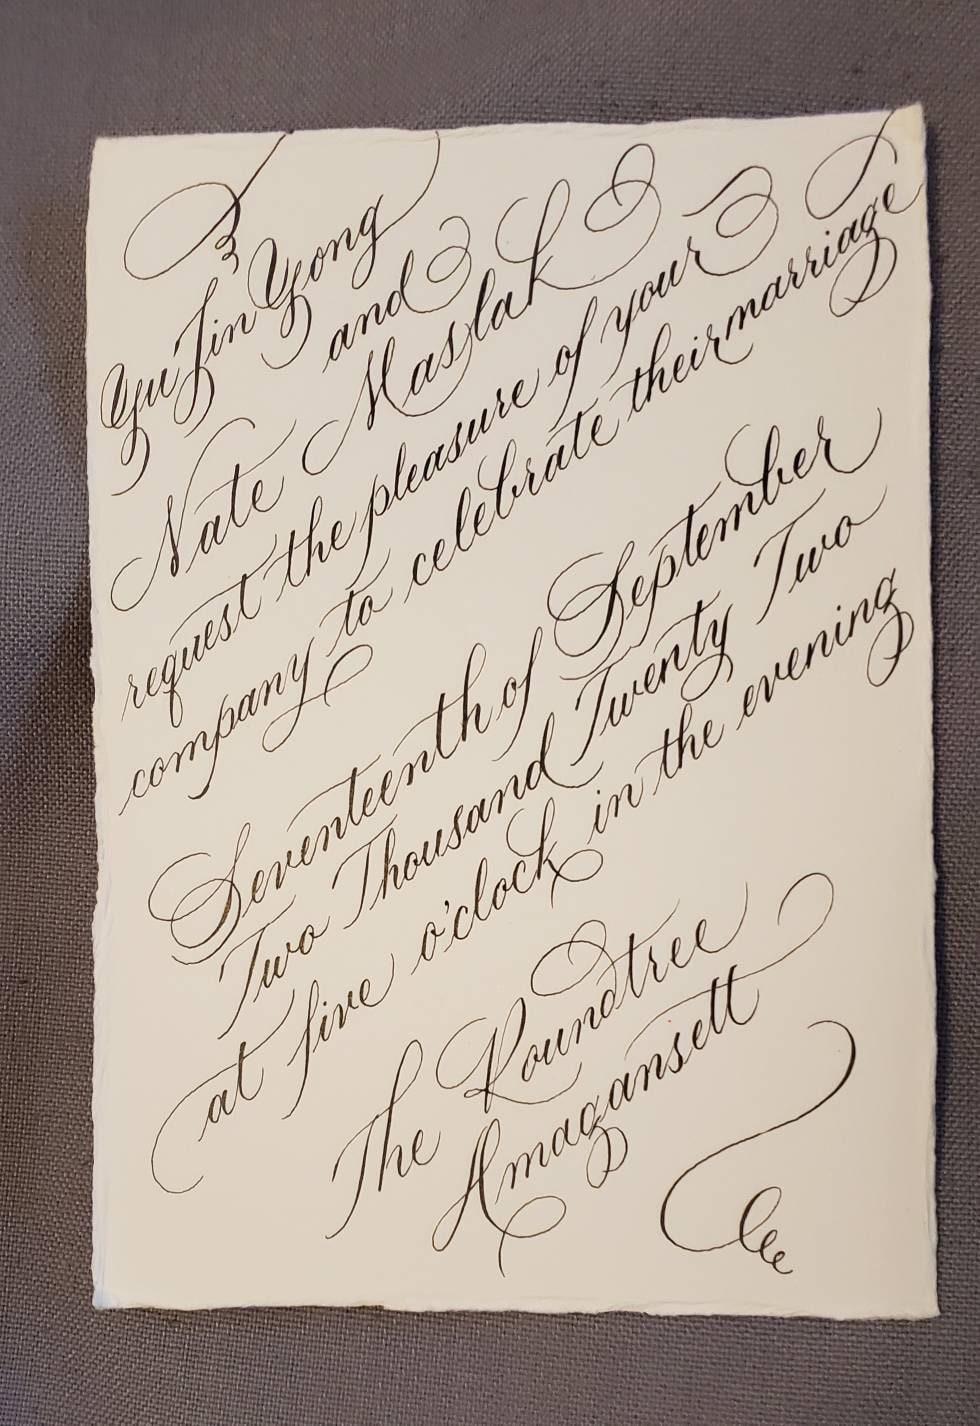 Yu Jin Yong
and
Nate Maslak
request the pleasure of your
company to celebrate their marriage
Seventeenth of September
Two Thousand Twenty Two
at five o'clock in the evening
The Roundtree
Amagansett